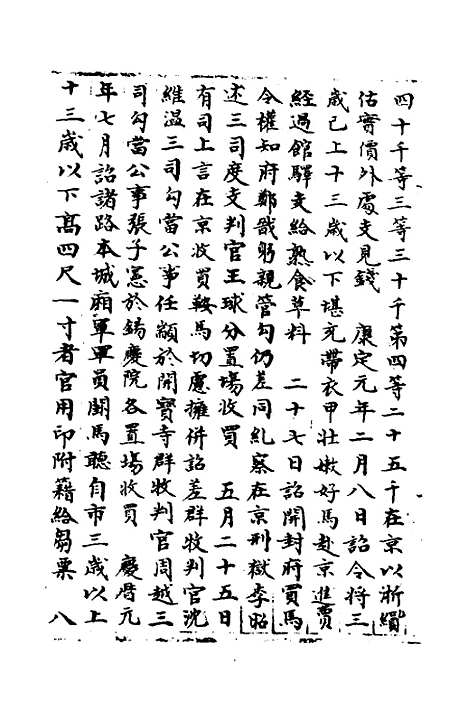 四十千等三等三十千第四等二十五千在京以浙絹
估實價外處支見錢　康定元年二月八日詔令將三
歲已上十三歲以下堪充帶衣甲壯嫩好馬赴京進賣
經過館驛支給熟食草料　二十七日詔開封府買馬
令權知府鄭戩躬親管勾仍差同糺察在京刑獄李昭
述三司度支判官王球分置場收買　五月二十五日
有司上言在京收買鞍馬切慮擁併詔差群牧判官沈
維温三司勾當公事任顓於開寶寺群牧判官周越三
司勾當公事張子憲於錫慶院各置場收買　慶曆元
年七月詔諸路本城廂軍軍員闕馬聽自市三歲以上
十三歲以下高四尺一寸者官用印附籍給芻粟　八